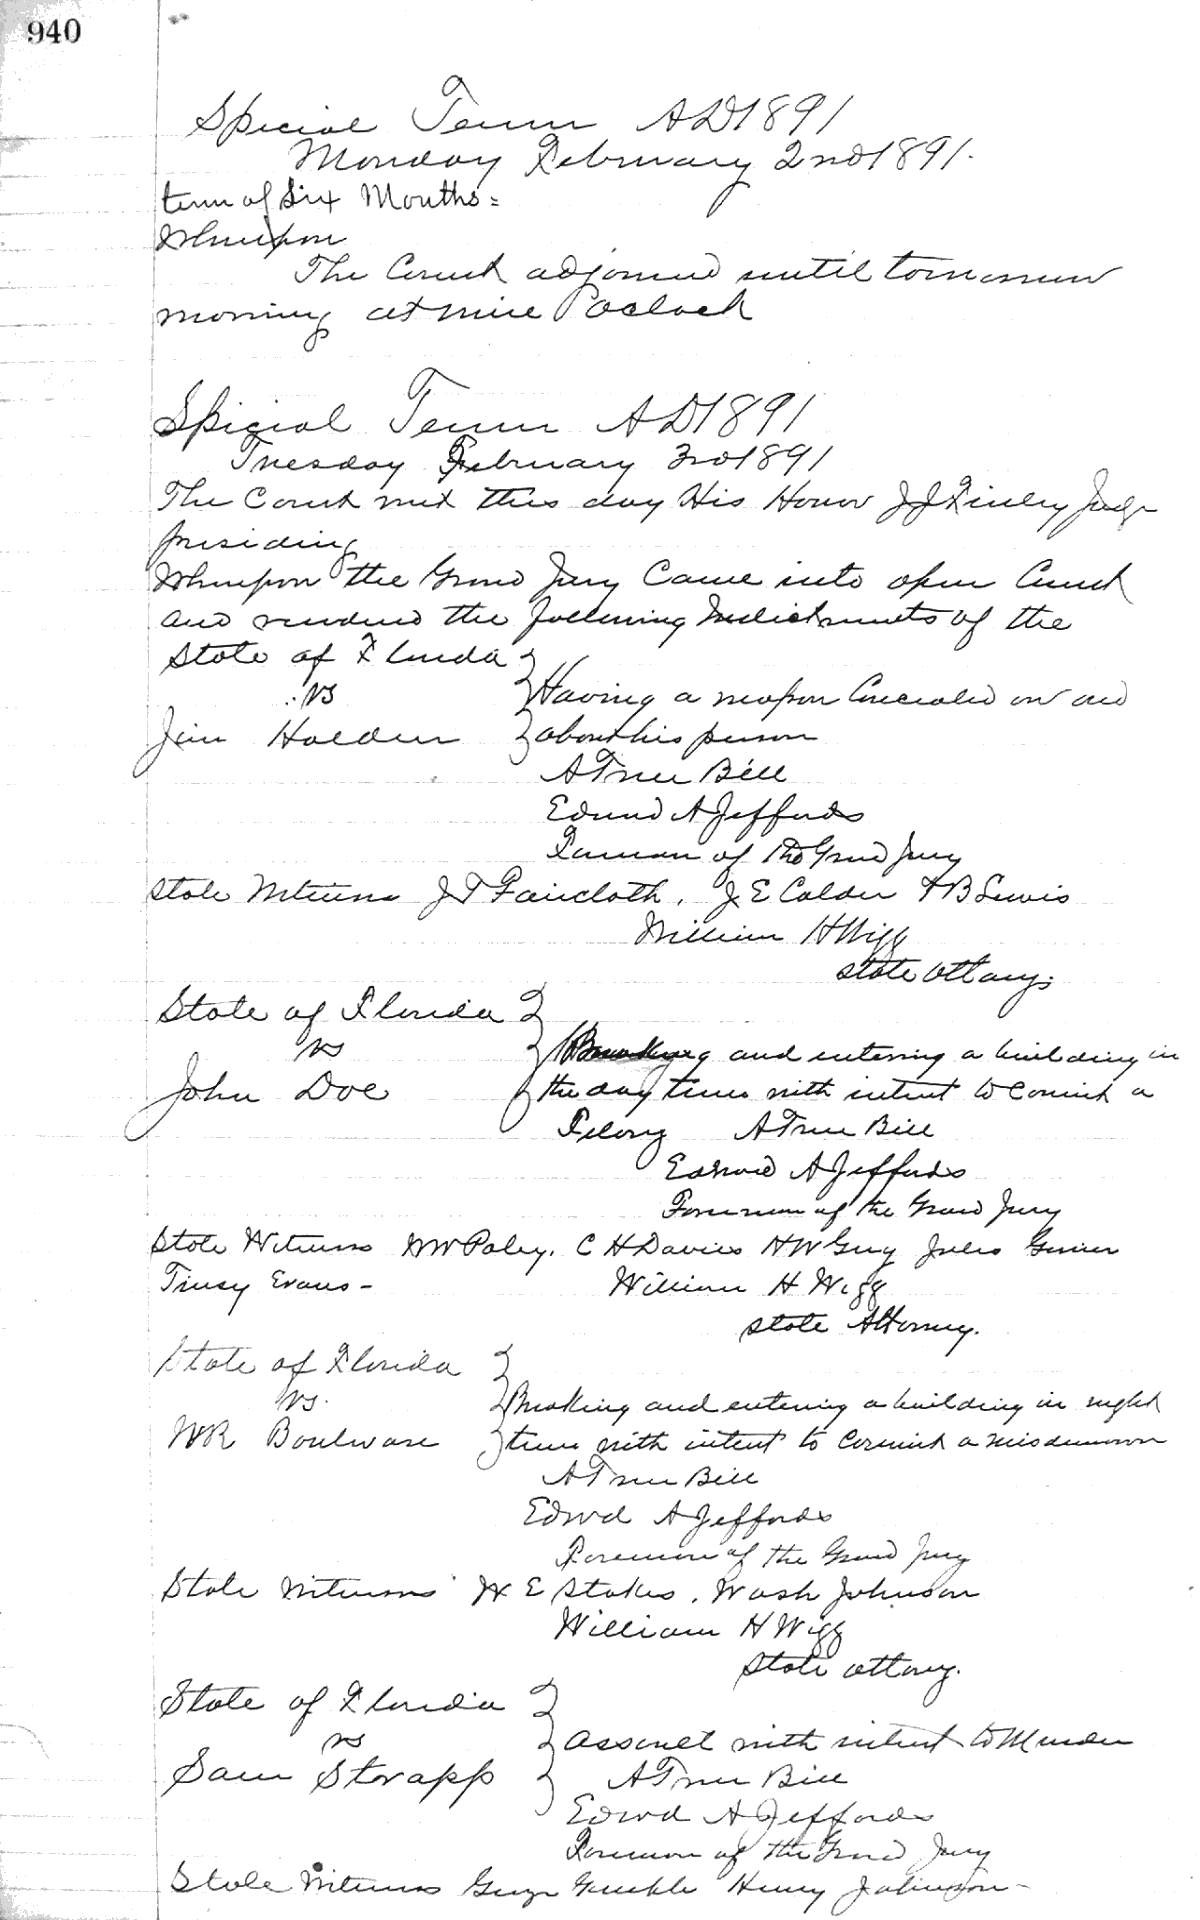 940
Special Term AD 1891
Monday February 2nd 1891.
term of Six Months =
Whereupon
The Court adjorned until tomorrow
morning at nine Oclock
Special Term AD 1891
Tuesday February 3rd 1891
The Court met this day His Honor J J Finley Judge
presiding
Whereupon the Grand Jury Came into open Court
and rendered the following Indictments of the
State of Florida
vs
Having a weapon Concealed on and
Jim Holden about his person
A True Bill
Edward A Jeffords
Foreman of the Grand Jury
State Witness J T Faircloth, J E Calder T B Lewis
William H Wigg
State Attorny.
State of Florida
vs
Breaking and entering a building in
John Doe the day time with intent to Commit a
Felony A True Bill
Edward A Jeffords
Foreman of the Grand Jury
State Witness C H Davies H W Guy Jules
Evans - William H Wigg
State Attorney.
State of Florida
vs.
Breaking and entering a building in night
W R Boulware time with intent to Commit a misdemeanor
A True Bill
Edwd A Jeffords
Foreman of the Grand Jury
State Witness W E Stokes, Wash Johnson
William H Wigg
State attorny.
State of Florida
vs
assault with intent to Murder
Sam Strapp A True Bill
Edwd A Jeffords
Foreman of the Grand Jury
State Witness Henry Johnson -